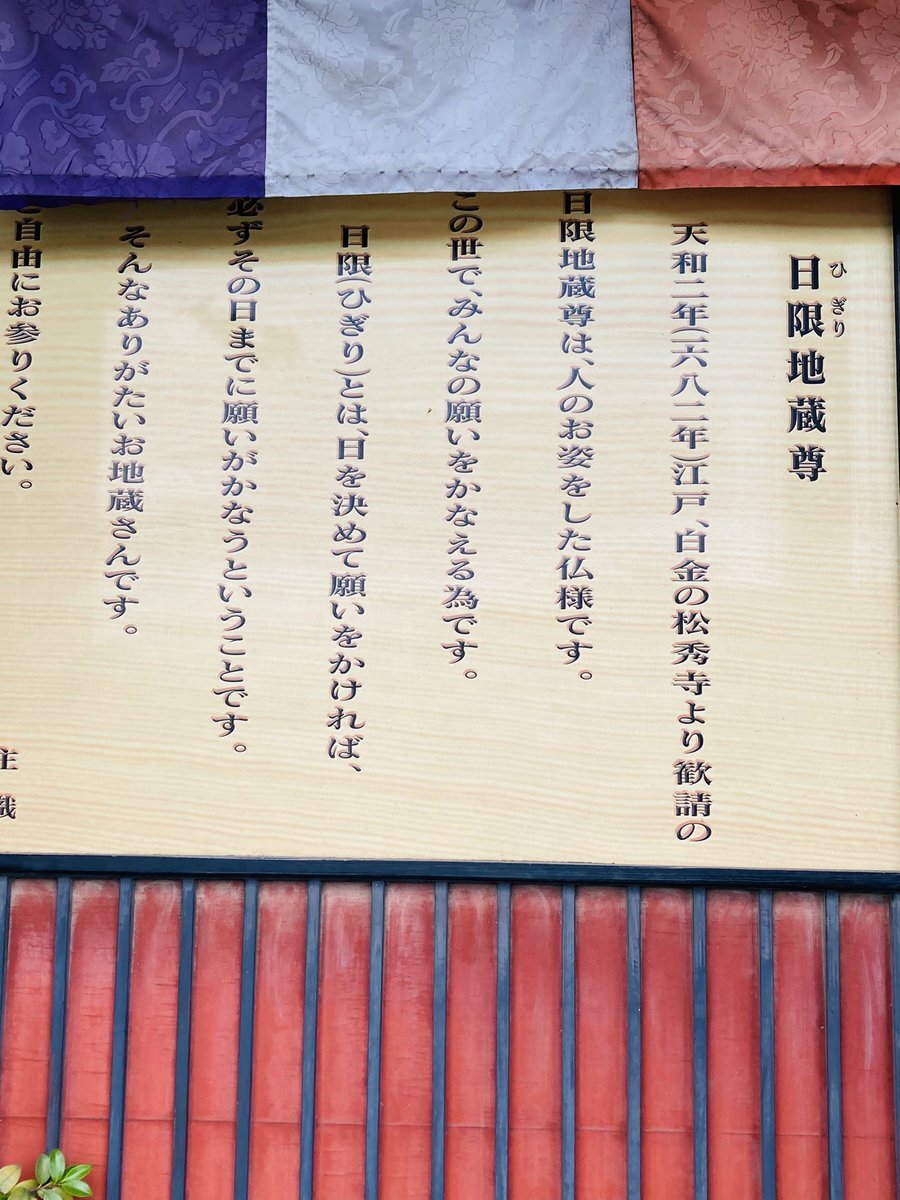 日限地蔵尊
ひぎり
天和二年(一六八二年)江戸、白金の松秀寺より歓請の
日限地蔵尊は、人のお姿をした仏様です。
この世で、みんなの願いをかなえる為です。
日限(ひぎり)とは、日を決めて願いをかければ、
必ずその日までに願いがかなうということです。
そんなありがたいお地蔵さんです。
自由にお参りください。
主